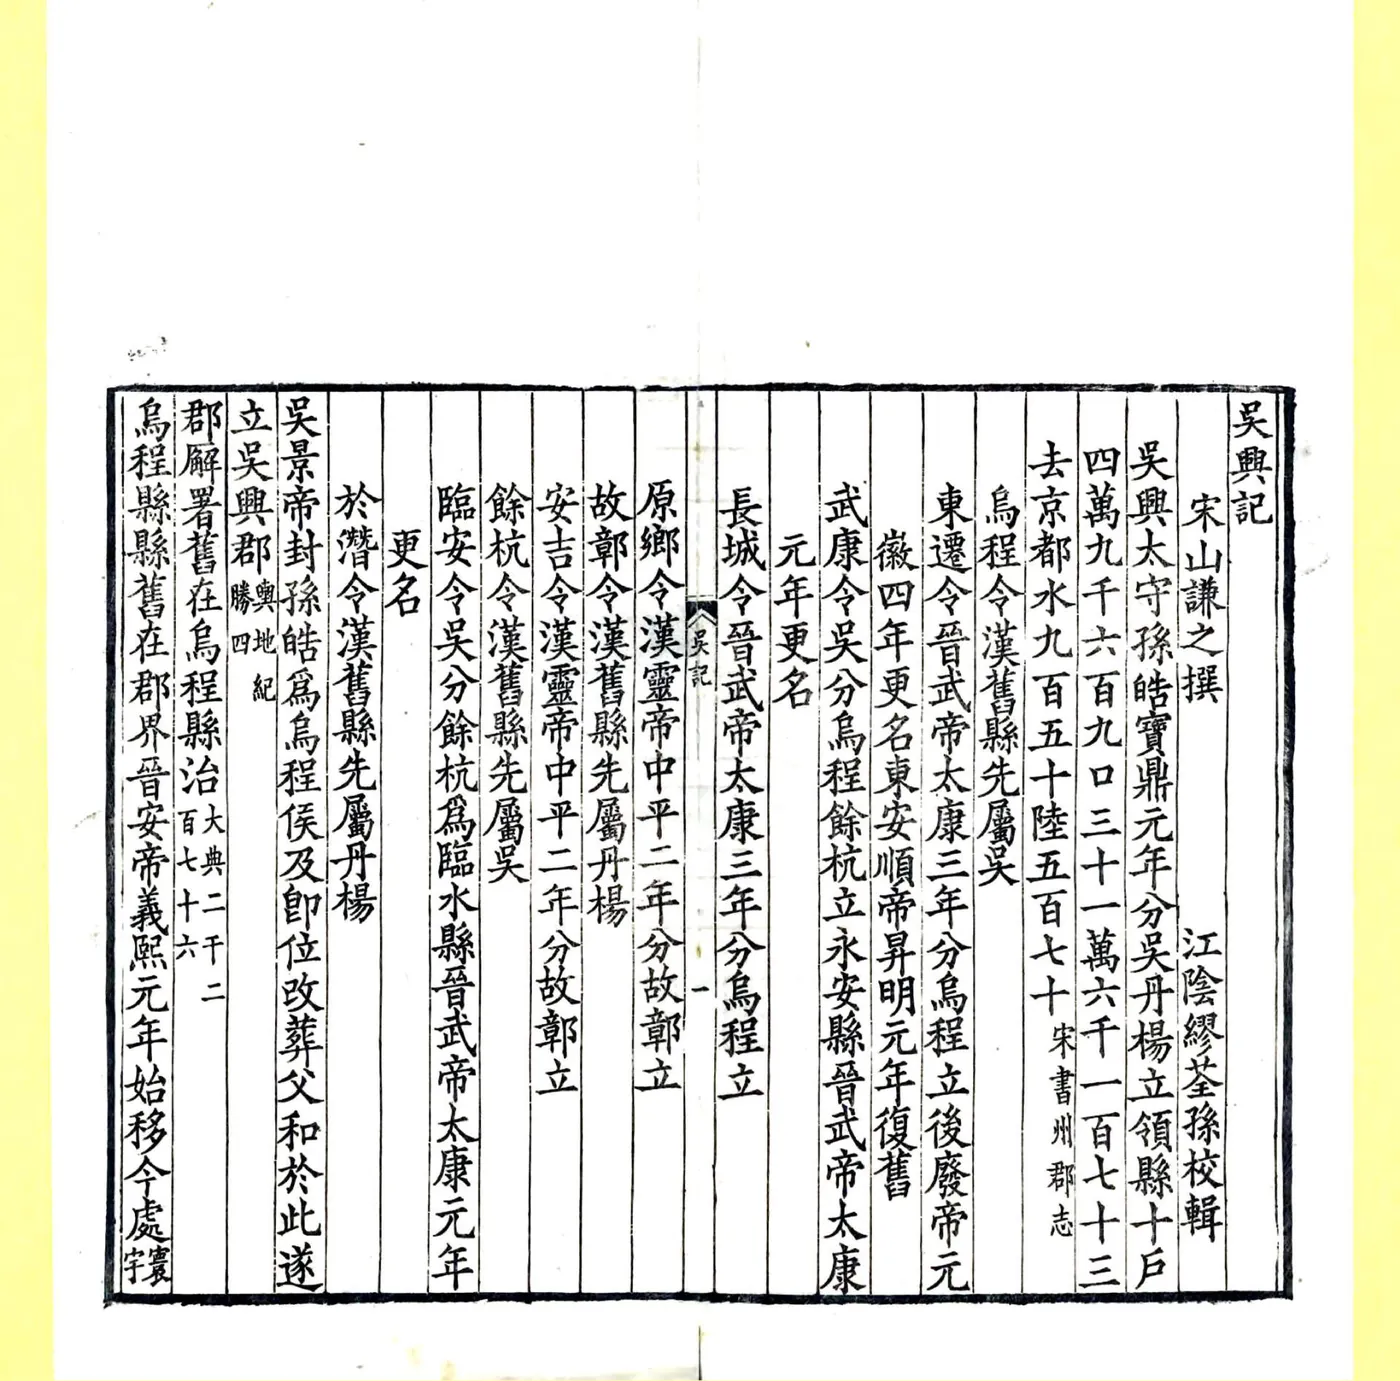 吳興記
宋山謙之撰　江陰繆荃孫校輯
吳興太守孫皓寶鼎元年分吳丹楊立領縣十戶
四萬九千六百九口三十一萬六千一百七十三
去京都水九百五十陸五百七十宋書州郡志
烏程令漢舊縣先屬吳
東遷令晉武帝太康三年分烏程立後廢帝元
徽四年更名東安順帝昇明元年復舊
武康令吳分烏程餘杭立永安縣晉武帝太康
元年更名
長城令晉武帝太康三年分烏程立
吳記
一
原鄉令漢靈帝中平二年分故鄣立
故鄣令漢舊縣先屬丹楊
安吉令漢靈帝中平二年分故鄣立
餘杭令漢舊縣先屬吳
臨安令吳分餘杭爲臨水縣晉武帝太康元年
更名
於潛令漢舊縣先屬丹楊
吳景帝封孫皓爲烏程侯及卽位改葬父和於此遂
立吳興郡輿地紀勝四
郡廨署舊在烏程縣治大典二千二百七十六
烏程縣縣舊在郡界晉安帝義熙元年始移今處寰宇